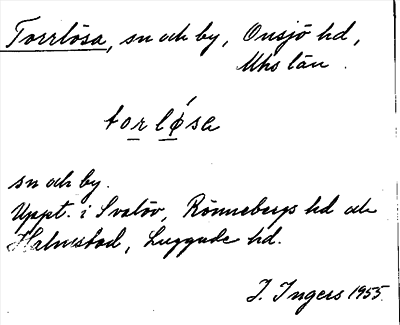 Torrlösa, sn och by, Onsjö hd,
Mhs län.
torlǿsa
sn och by.
Uppt. i Svalöv, Rönnebergs hd och
Halmstad, Luggude hd.
I. Ingers 1955.